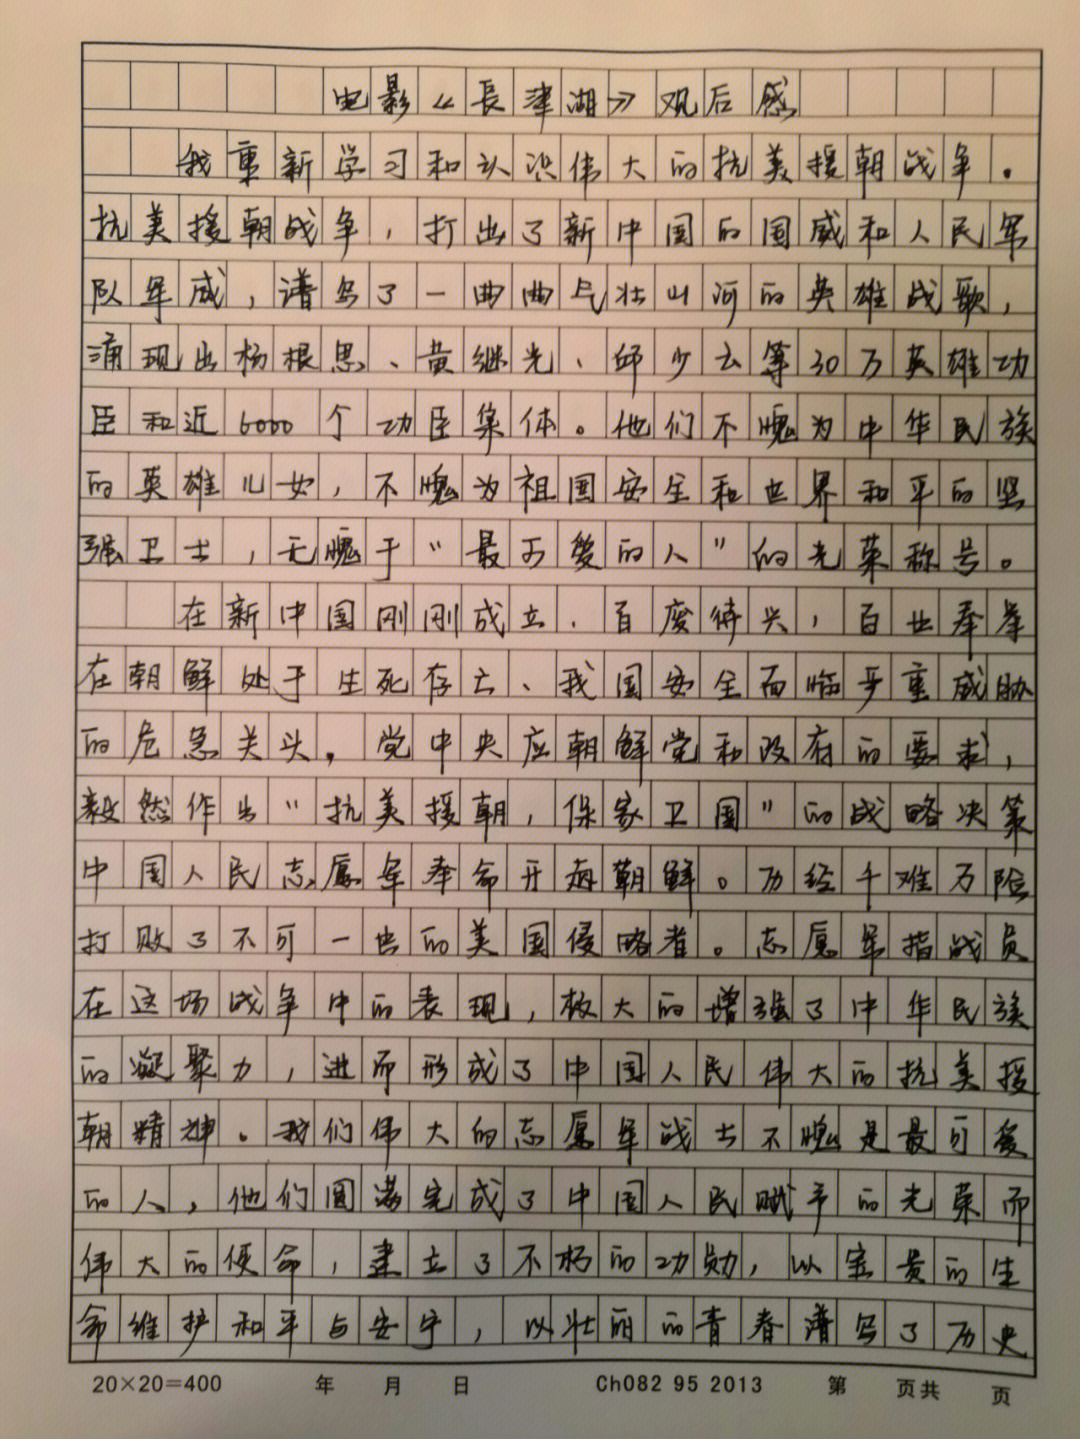 电影《長津湖》观后感
我重新学习和认识伟大的抗美援朝战争。
抗美援朝战争，打出了新中国的国威和人民军
队军威，谱写了一曲曲气壮山河的英雄战歌，
涌现出杨根思、黄继光、邱少云等30万英雄功
臣和近6000个功臣集体。他们不愧为中华民族
的英雄儿女，不愧为祖国安全和世界和平的坚
强卫士，无愧于“最可爱的人”的光荣称号。
在新中国刚刚成立、百废待兴，百业奉举
在朝鲜处于生死存亡、我国安全面临严重威胁
的危急关头，党中央应朝鲜党和政府的要求，
毅然作出“抗美援朝，保家卫国”的战略决策
中国人民志愿军奉命开赴朝鲜。历经千难万险
打败了不可一世的美国侵略者。志愿军指战员
在这场战争中的表现，极大的增强了中华民族
的凝聚力，进而形成了中国人民伟大的抗美援
朝精神。我们伟大的志愿军战士不愧是最可爱
的人，他们圆满完成了中国人民赋予的光荣而
伟大的使命，建立了不朽的功勋，以宝贵的生
命维护和平与安宁，以壮丽的青春谱写了历史
20×20=400 年 月 日 Ch082 95 2013 第 页共 页